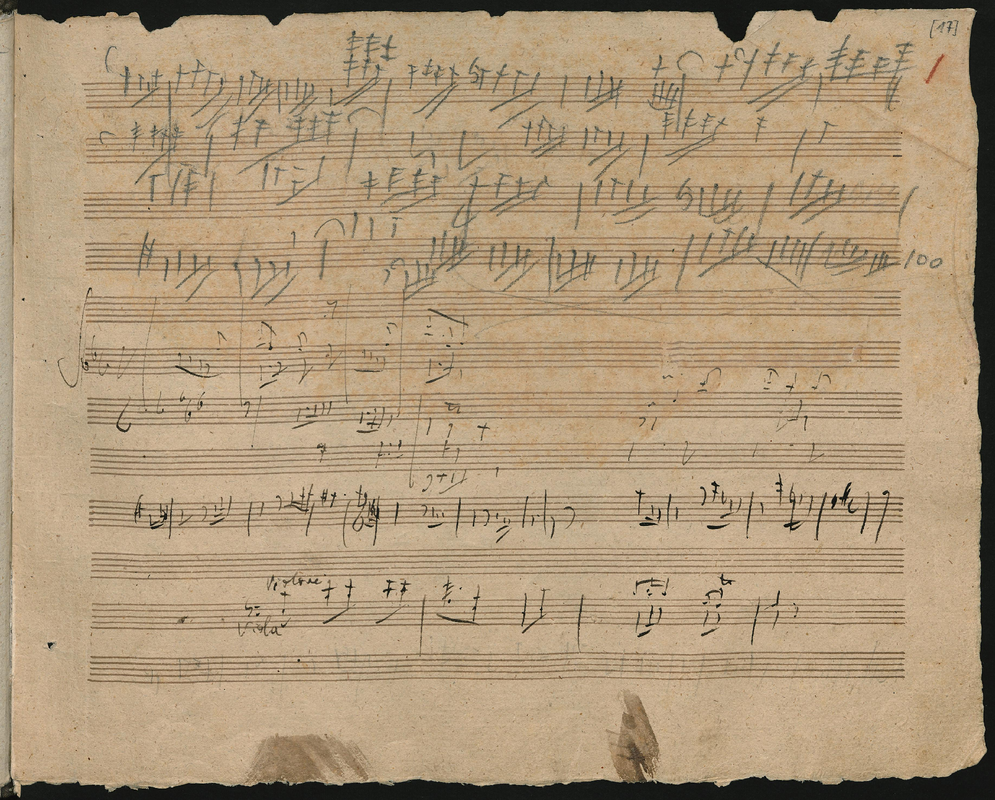 [17]
100
Violone
Viola